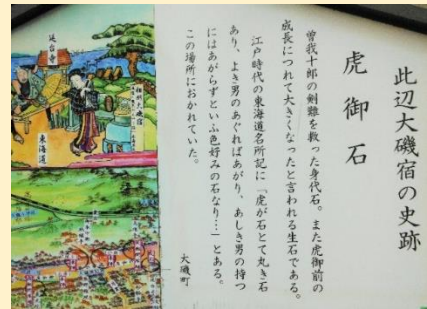 此辺大磯宿の史跡
虎御石
曽我十郎の剣難を救った身代石。また虎御前の
成長につれて大きくなったと言われる生石である。
江戸時代の東海道名所記に「虎が石とて丸き石
あり、よき男のあぐればあがり、あしき男の持つ
にはあがらずといふ色好みの石なり…」とある。
この場所におかれていた。
大磯町
延台寺
東海道